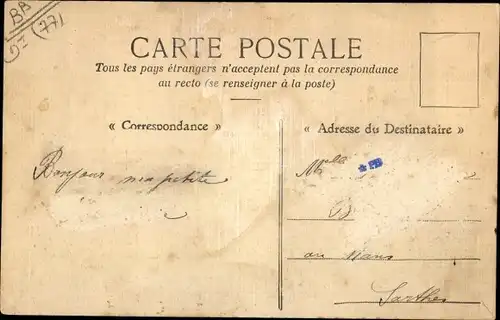 BB
(77)
CARTE POSTALE
Tous les pays étrangers n'acceptent pas la correspondance
au recto (se renseigner à la poste)
« Correspondance »
« Adresse du Destinataire »
Bonjour ma petite
Mlle
B
au Mans
Sarthe